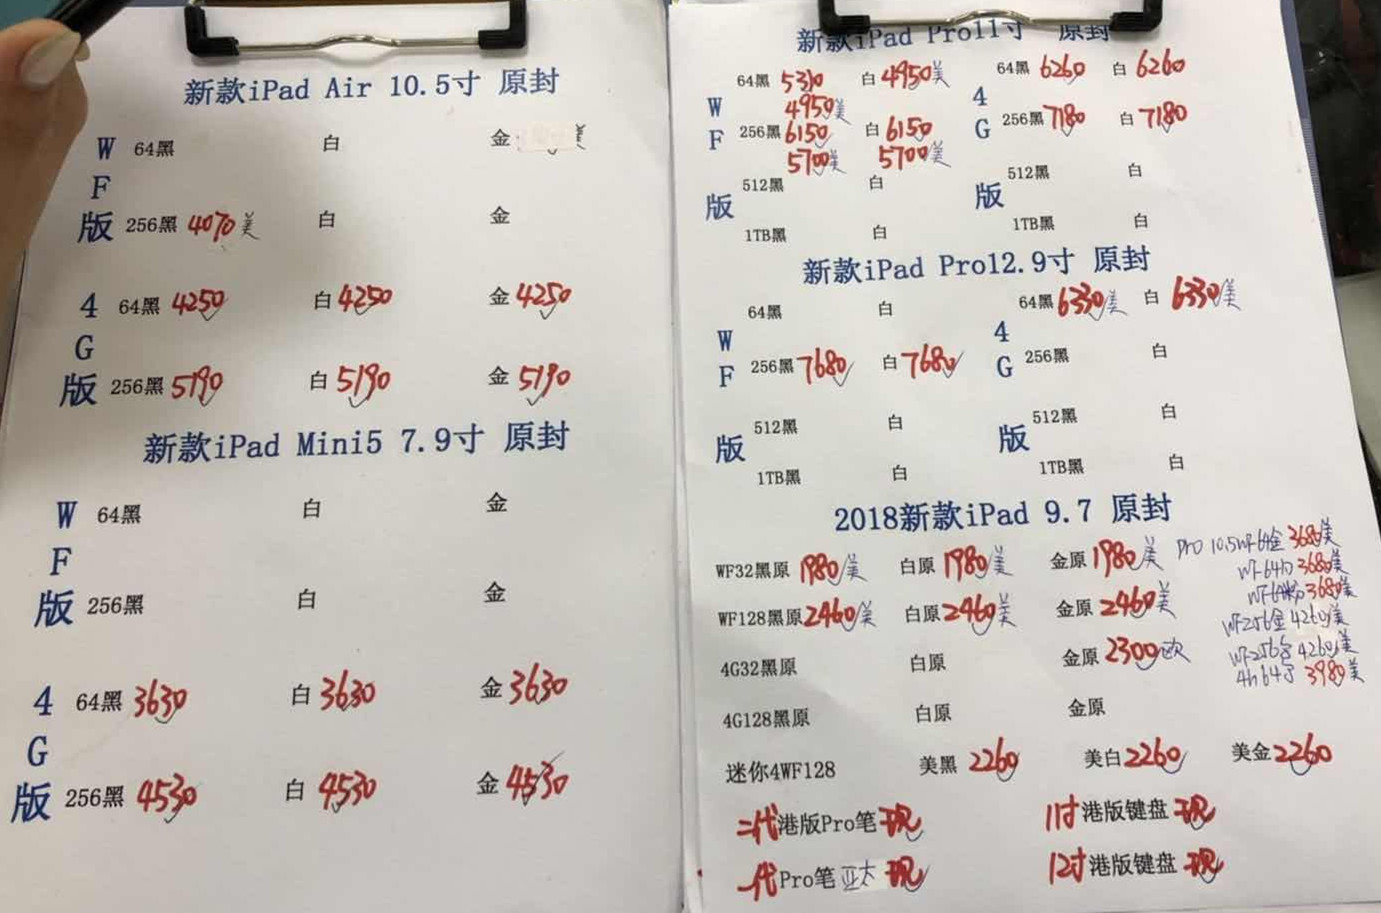 新款iPad Air 10.5寸 原封
W 64黑 白 金 美
F
版 256黑 4070美 白 金
4 64黑 4250 白 4250 金 4250
G
版 256黑 5190 白 5190 金 5190
新款iPad Mini5 7.9寸 原封
W 64黑 白 金
F
版 256黑 白 金
4 64黑 3630 白 3630 金 3630
G
版 256黑 4530 白 4530 金 4530
新款iPad Pro11寸 原封
64黑 5310 白 4950美 64黑 6260 白 6260
W 4950美 4
F 256黑 6150 白 6150 G 256黑 7180 白 7180
5700美 5700美
版 512黑 白 版 512黑 白
1TB黑 白 1TB黑 白
新款iPad Pro12.9寸 原封
64黑 白 64黑 6330美 白 6330美
W 4
F 256黑 7680 白 7680 G 256黑 白
版 512黑 白 版 512黑 白
1TB黑 白 1TB黑 白
2018新款iPad 9.7 原封
WF32黑原 1980美 白原 1980美 金原 1980美
WF128黑原 2460美 白原 2460美 金原 2460美
4G32黑原 白原 金原 2300欧
4G128黑原 白原 金原
pro 10.5WF64金 3680美
WF64 3680美
WF64粉 3680美
WF256金 4260美
WF256 4260美
64 3980美
迷你4WF128 美黑 2260 美白 2260 美金 2260
二代港版Pro笔 现 11寸港版键盘 现
一代Pro笔 亚太 现 12寸港版键盘 现